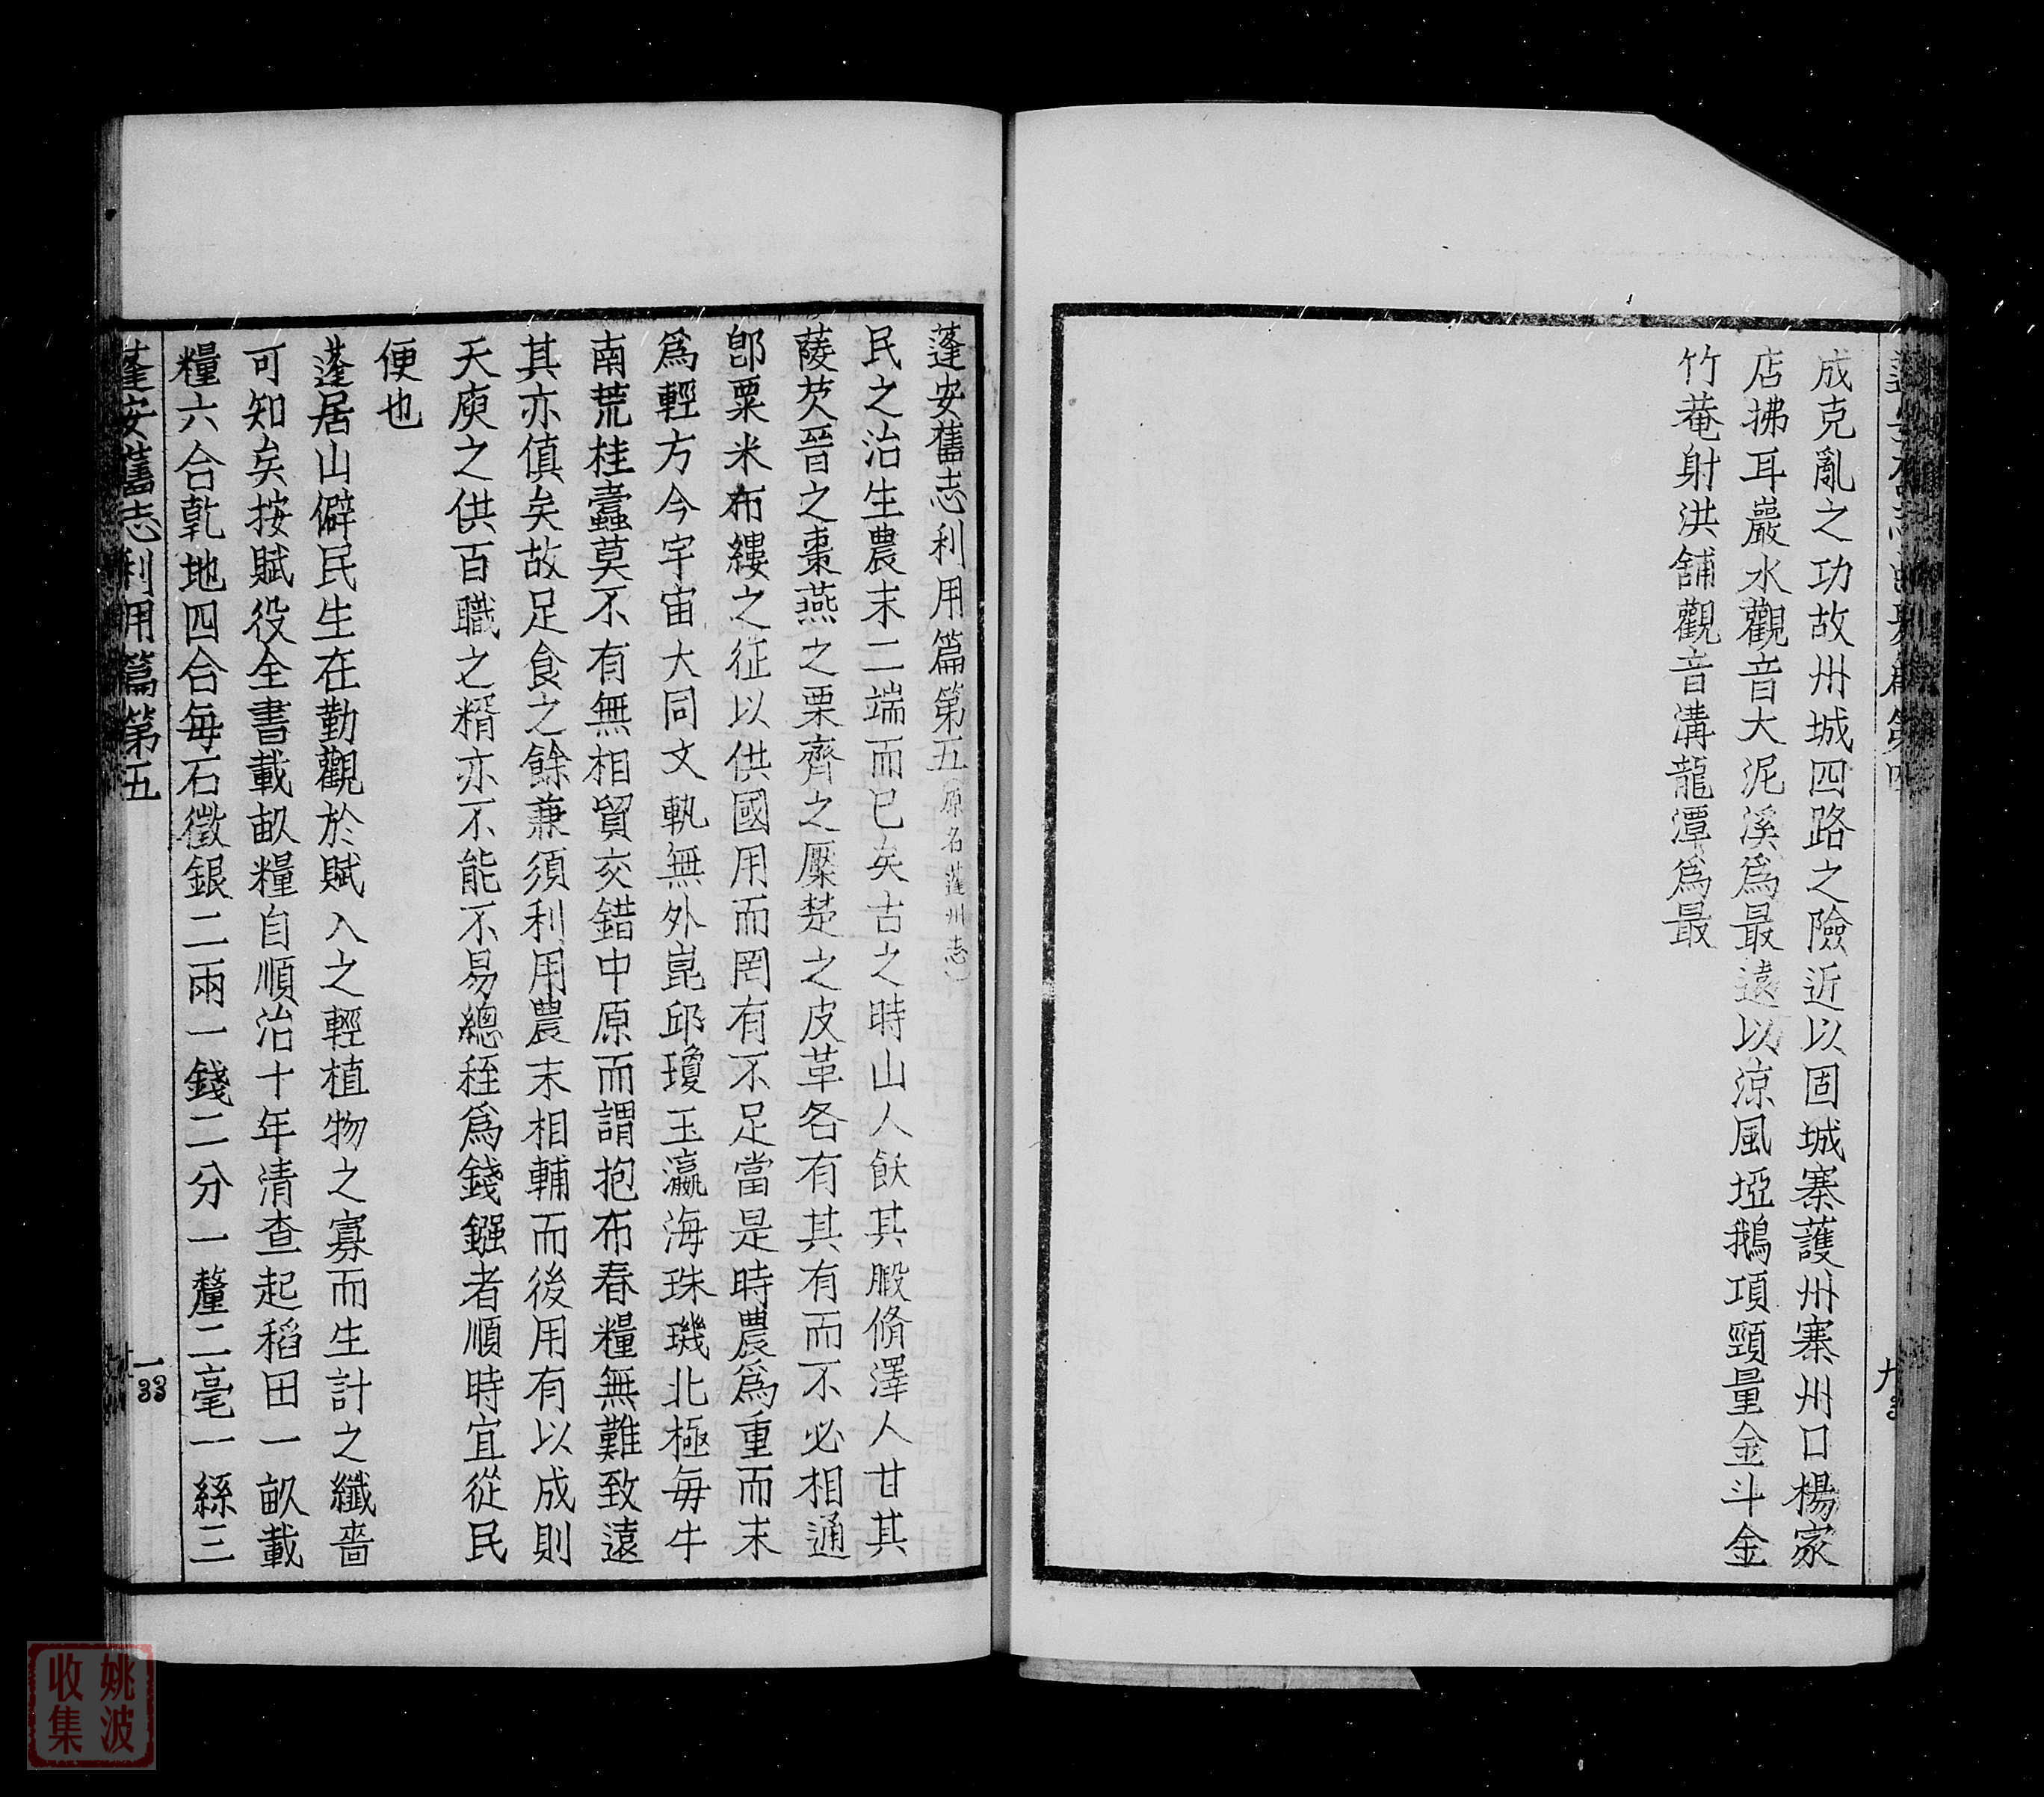 成克亂之功故州城四路之險近以固城寨護州寨州口楊家
店拂耳巖水觀音大泥溪爲最遠以涼風埡鵝項頸量金斗金
竹菴射洪舖觀音溝龍潭爲最
蓬安舊志利用篇第五（原名蓬州志）
民之治生農末二端而已矣古之時山人飫其腶脩澤人甘其
薐芡晉之棗燕之栗齊之檿楚之皮革各有其有而不必相通
卽粟米布縷之征以供國用而罔有不足當是時農爲重而末
爲輕方今宇宙大同文軌無外崑邱瓊玉瀛海珠璣北極每牛
南荒桂蠹莫不有無相貿交錯中原而謂抱布舂糧無難致遠
其亦傎矣故足食之餘兼須利用農末相輔而後用有以成則
天庾之供百職之糈亦不能不易總秷爲錢鏹者順時宜從民
便也
蓬居山僻民生在勤觀於賦入之輕植物之寡而生計之纖嗇
可知矣按賦役全書載畝糧自順治十年清查起稻田一畝載
糧六合乾地四合每石徵銀二兩一錢二分一釐二毫一絲三
蓬安舊志利用篇第五
姚波
收集